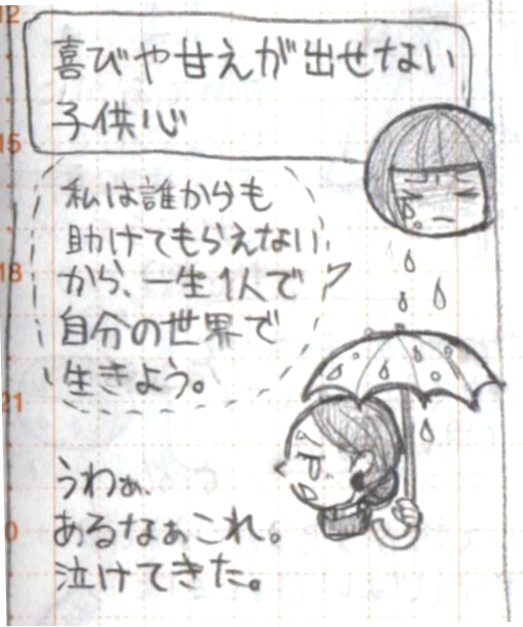 12
喜びや甘えが出せない
子供心
15
私は誰からも
助けてもらえない
18
から、一生1人で
自分の世界で
生きよう。
21
うわぁ、
あるなぁこれ。
0
泣けてきた。